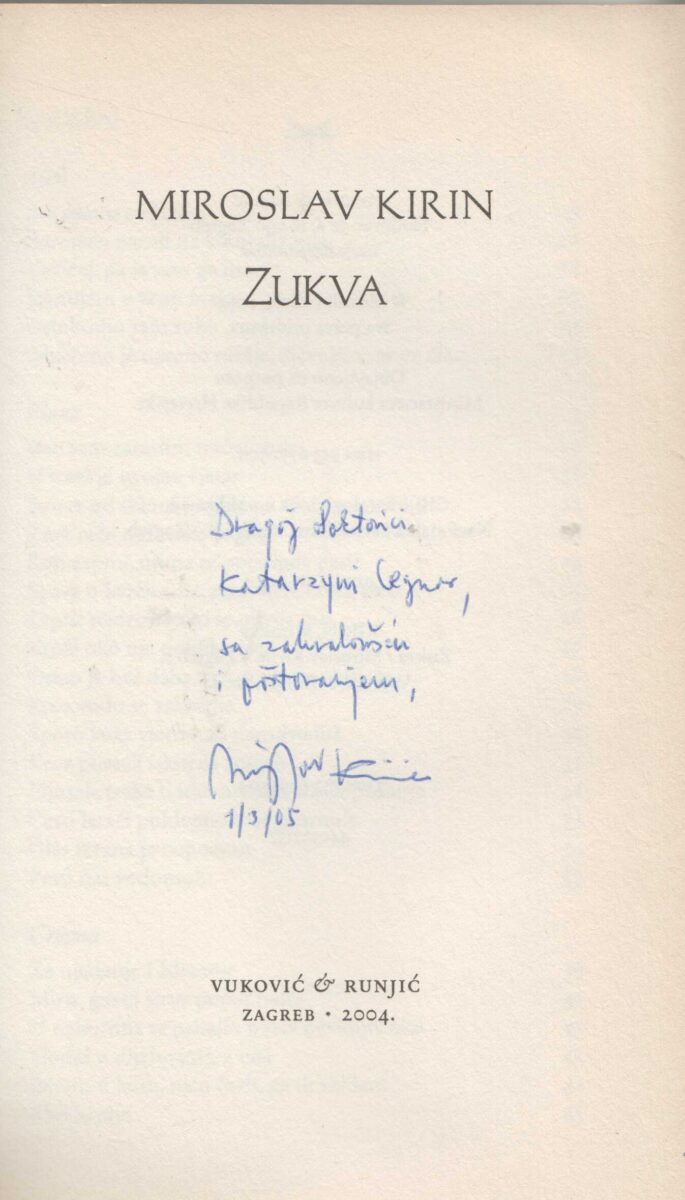 MIROSLAV KIRIN
ZUKVA
Dragoj Doktorici
Katarzyni
sa zahvalnošću
i poštovanjem,
Miroslav Kirin
1/3/05
VUKOVIĆ & RUNJIĆ
ZAGREB • 2004.